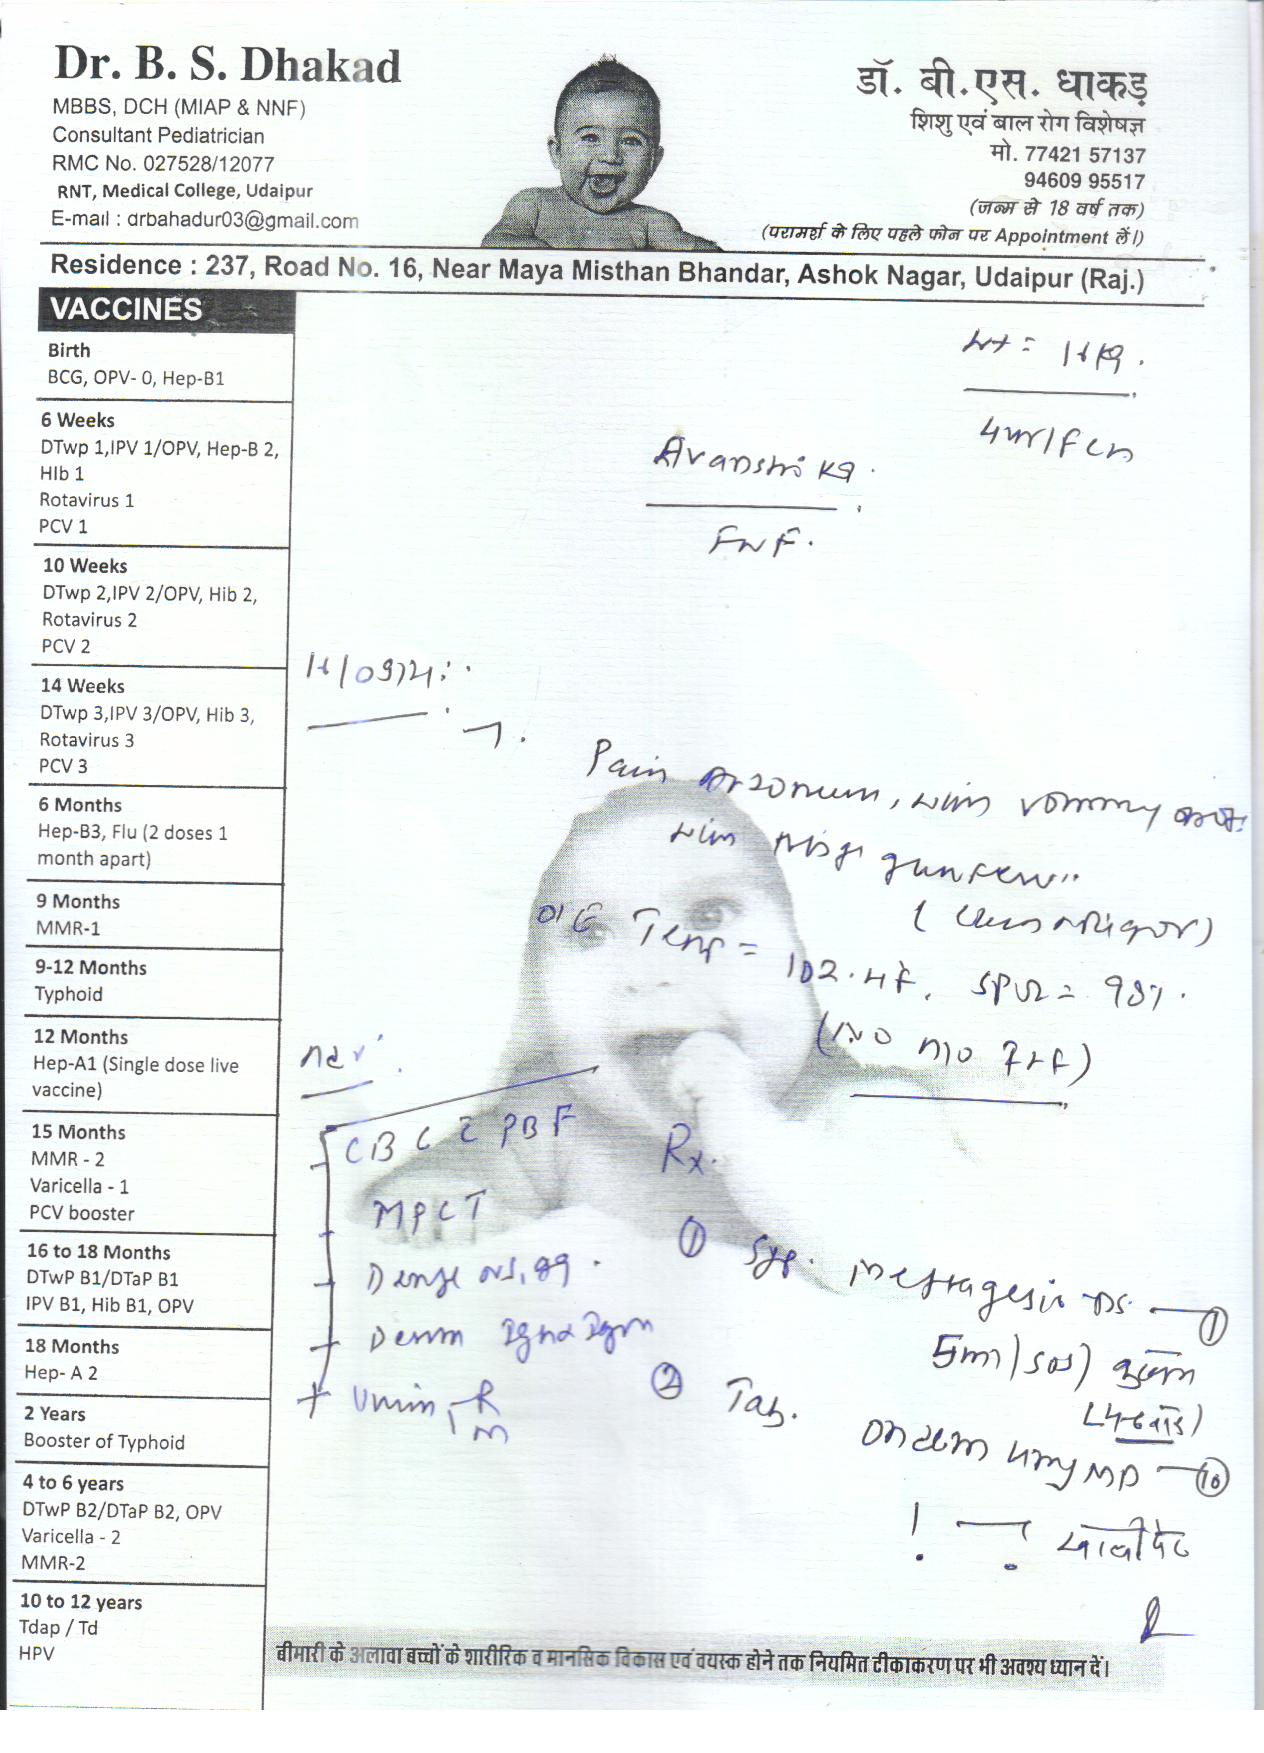 Dr. B. S. Dhakad
MBBS, DCH (MIAP & NNF)
Consultant Pediatrician
RMC No. 027528/12077
RNT, Medical College, Udaipur
E-mail : drbahadur03@gmail.com
डॉ. बी.एस. धाकड़
शिशु एवं बाल रोग विशेषज्ञ
मो. 77421 57137
94609 95517
(जन्म से 18 वर्ष तक)
(परामर्श के लिए पहले फोन पर Appointment लें।)
Residence : 237, Road No. 16, Near Maya Misthan Bhandar, Ashok Nagar, Udaipur (Raj.)
VACCINES
Birth
BCG, OPV- 0, Hep-B1
6 Weeks
DTwp 1,IPV 1/OPV, Hep-B 2,
HIb 1
Rotavirus 1
PCV 1
10 Weeks
DTwp 2,IPV 2/OPV, Hib 2,
Rotavirus 2
PCV 2
14 Weeks
DTwp 3,IPV 3/OPV, Hib 3,
Rotavirus 3
PCV 3
6 Months
Hep-B3, Flu (2 doses 1
month apart)
9 Months
MMR-1
9-12 Months
Typhoid
12 Months
Hep-A1 (Single dose live
vaccine)
15 Months
MMR - 2
Varicella - 1
PCV booster
16 to 18 Months
DTwP B1/DTaP B1
IPV B1, Hib B1, OPV
18 Months
Hep- A 2
2 Years
Booster of Typhoid
4 to 6 years
DTwP B2/DTaP B2, OPV
Varicella - 2
MMR-2
10 to 12 years
Tdap / Td
HPV
Avanshika
Pain
O/E Temp = 102.4F, SPO2 = 98%.
CBC c PBF
MPCT
Dengue NS1 Ag.
Rx.
① Syp. Metragesic DS. — ①
5ml/SOS)
② Tab. Ondem 4mg MD — ⑩
बीमारी के अलावा बच्चों के शारीरिक व मानसिक विकास एवं वयस्क होने तक नियमित टीकाकरण पर भी अवश्य ध्यान दें।